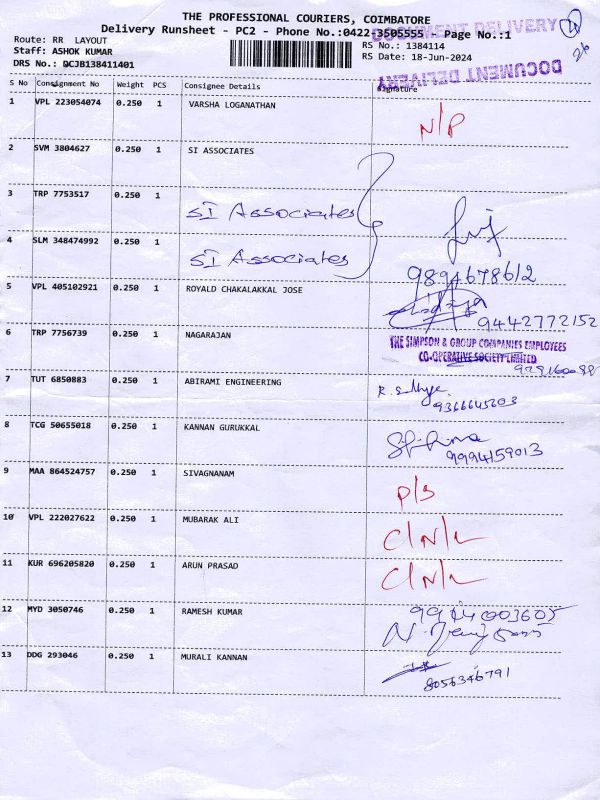 THE PROFESSIONAL COURIERS, COIMBATORE
Delivery Runsheet - PC2 - Phone No.:0422 3505555 - Page No.:1
DOCUMENT DELIVERY
4
26
Route: RR LAYOUT
RS No.: 1384114
Staff: ASHOK KUMAR
RS Date: 18-Jun-2024
DRS No.: DCJB138411401
DOCUMENT DELIVERY
S No Consignment No Weight PCS Consignee Details Signature
1 VPL 223054074 0.250 1 VARSHA LOGANATHAN
N/P
2 SVM 3804627 0.250 1 SI ASSOCIATES
3 TRP 7753517 0.250 1
SI Associates
4 SLM 348474992 0.250 1
SI Associates
9894678612
5 VPL 405102921 0.250 1 ROYALD CHAKALAKKAL JOSE
9442772152
6 TRP 7756739 0.250 1 NAGARAJAN
THE SIMPSON & GROUP COMPANIES EMPLOYEES
CO-OPERATIVE SOCIETY LIMITED
7 TUT 6850883 0.250 1 ABIRAMI ENGINEERING
9366645203
8 TCG 50655018 0.250 1 KANNAN GURUKKAL
9994159013
9 MAA 864524757 0.250 1 SIVAGNANAM
P/S
10 VPL 222027622 0.250 1 MUBARAK ALI
C/N/L
11 KUR 696205820 0.250 1 ARUN PRASAD
C/N/L
12 MYD 3050746 0.250 1 RAMESH KUMAR
9944003605
13 DDG 293046 0.250 1 MURALI KANNAN
8056346791